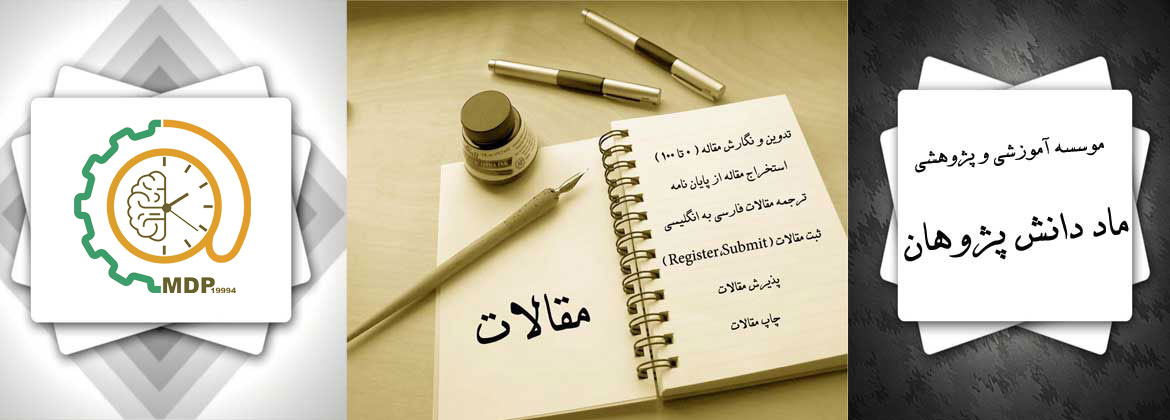 موسسه آموزشی و پژوهشی
ماد دانش پژوهان
تدوین و نگارش مقاله ( ۰ تا ۱۰۰ )
استخراج مقاله از پایان نامه
ترجمه مقالات فارسی به انگلیسی
ثبت مقالات (Register،Submit)
پذیرش مقالات
چاپ مقالات
مقالات
MDP19994